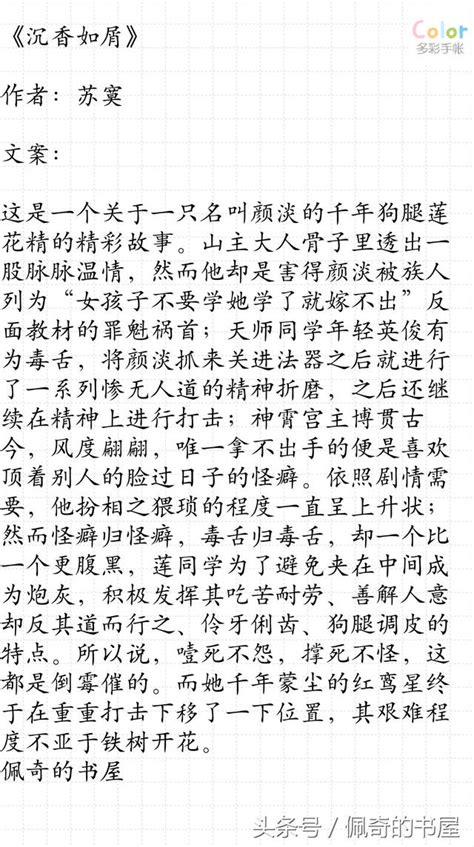 《沉香如屑》
Color
多彩手帐
作者：苏寞
文案：
这是一个关于一只名叫颜淡的千年狗腿莲
花精的精彩故事。山主大人骨子里透出一
股脉脉温情，然而他却是害得颜淡被族人
列为“女孩子不要学她学了就嫁不出”反
面教材的罪魁祸首；天师同学年轻英俊有
为毒舌，将颜淡抓来关进法器之后就进行
了一系列惨无人道的精神折磨，之后还继
续在精神上进行打击；神霄宫主博贯古
今，风度翩翩，唯一拿不出手的便是喜欢
顶着别人的脸过日子的怪癖。依照剧情需
要，他扮相之猥琐的程度一直呈上升状；
然而怪癖归怪癖，毒舌归毒舌，却一个比
一个更腹黑，莲同学为了避免夹在中间成
为炮灰，积极发挥其吃苦耐劳、善解人意
却反其道而行之、伶牙俐齿、狗腿调皮的
特点。所以说，噎死不怨，撑死不怪，这
都是倒霉催的。而她千年蒙尘的红鸾星终
于在重重打击下移了一下位置，其艰难程
度不亚于铁树开花。
佩奇的书屋
头条号 / 佩奇的书屋